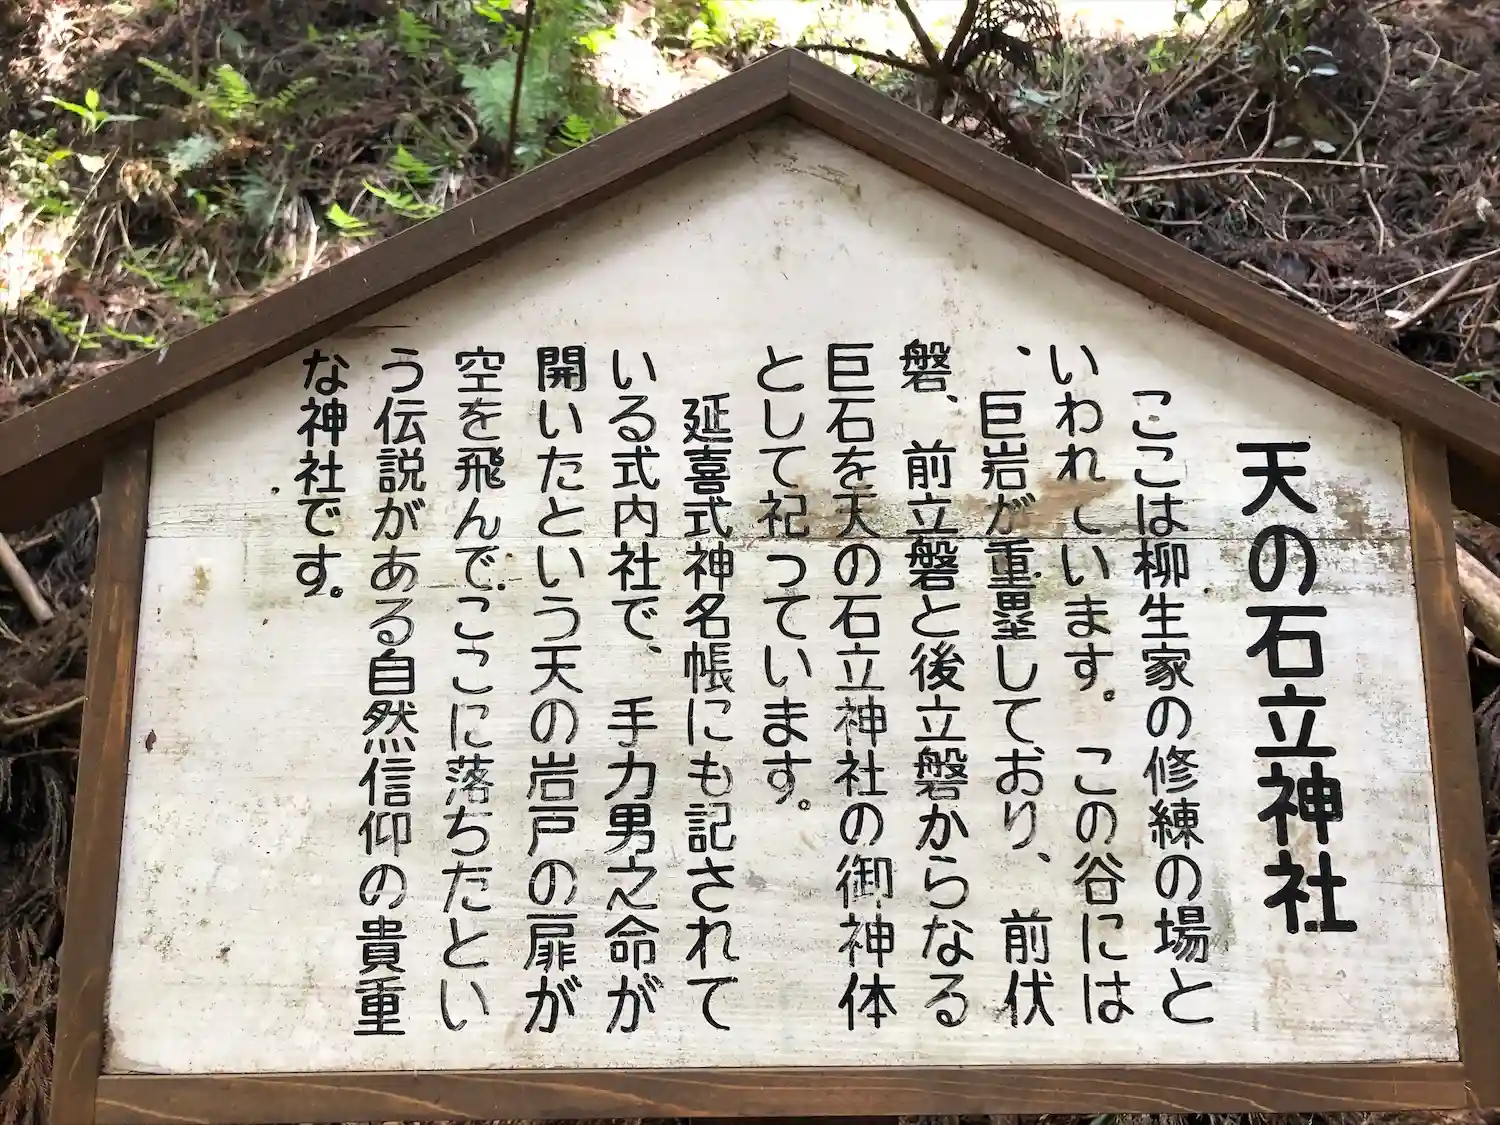 天の石立神社
ここは柳生家の修練の場と
いわれています。この谷には
、巨岩が重塁しており、前伏
磐、前立磐と後立磐からなる
巨石を天の石立神社の御神体
として祀っています。
延喜式神名帳にも記されて
いる式内社で、手力男之命が
開いたという天の岩戸の扉が
空を飛んでここに落ちたとい
う伝説がある自然信仰の貴重
な神社です。